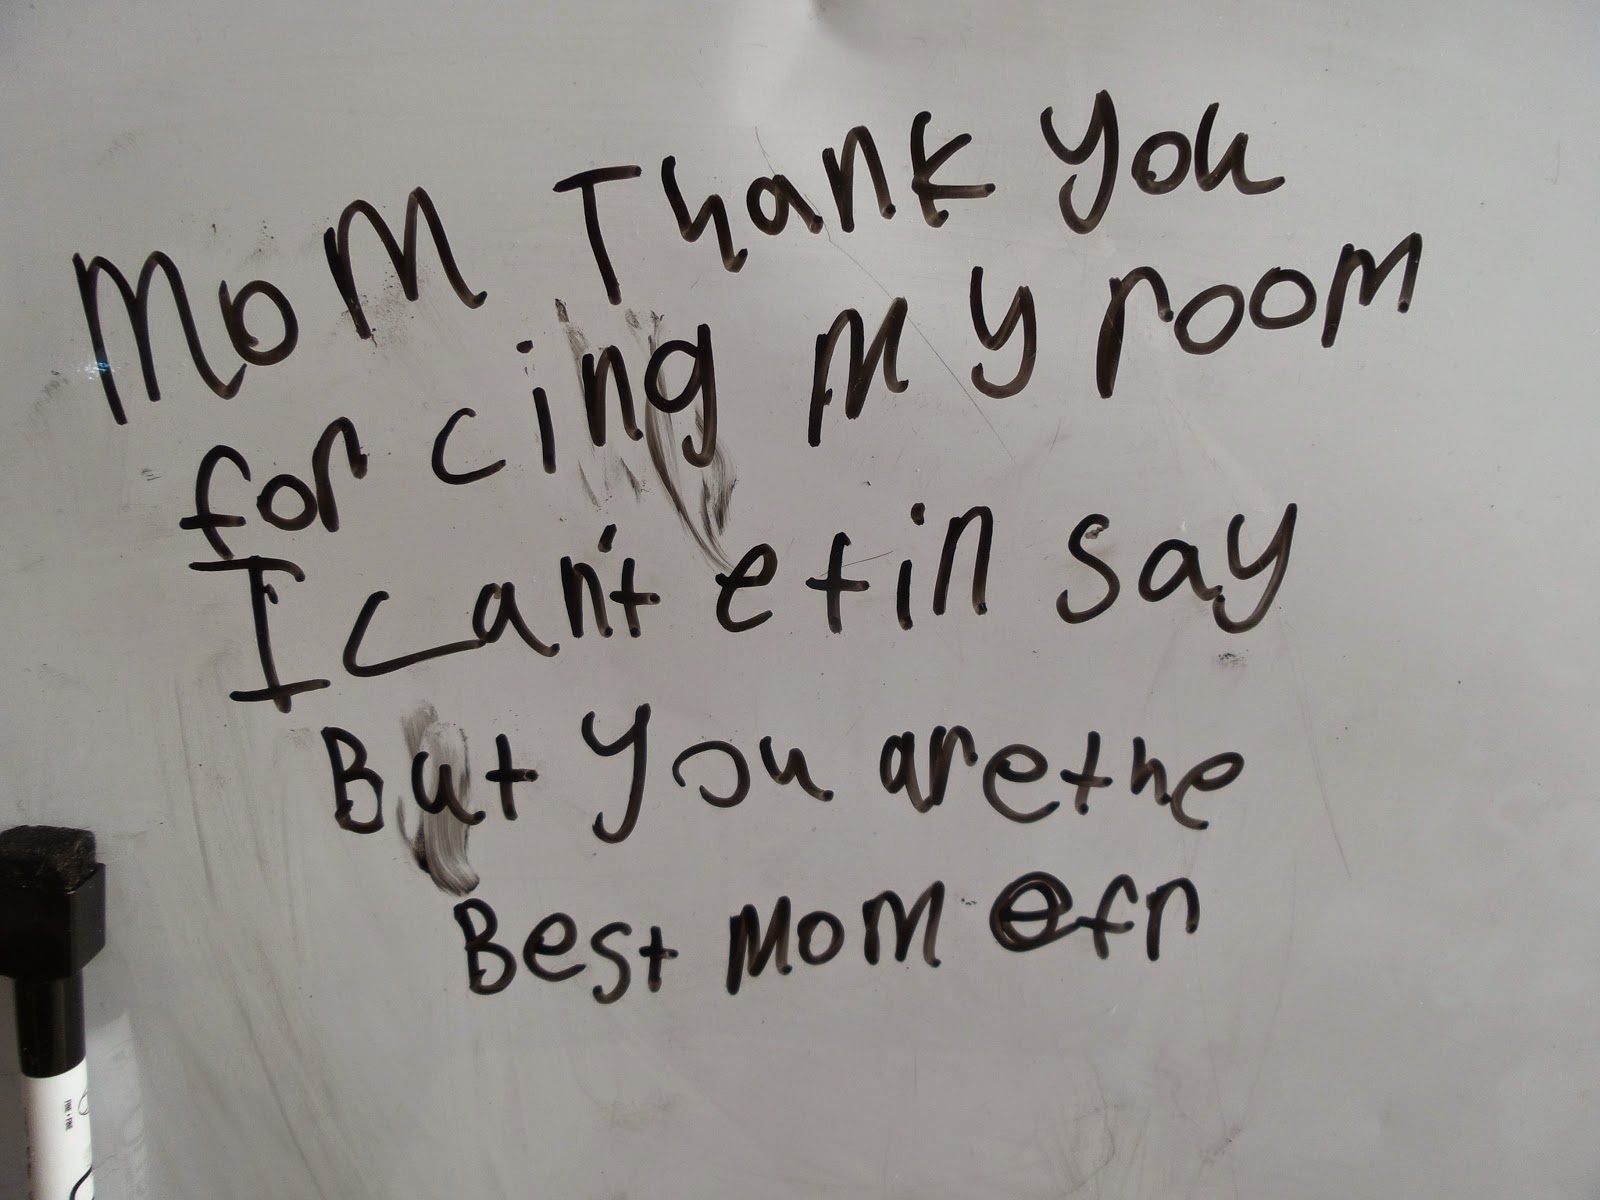 MoM Thank you
for cing My room
I can't etin say
But you are the
Best Mom efr